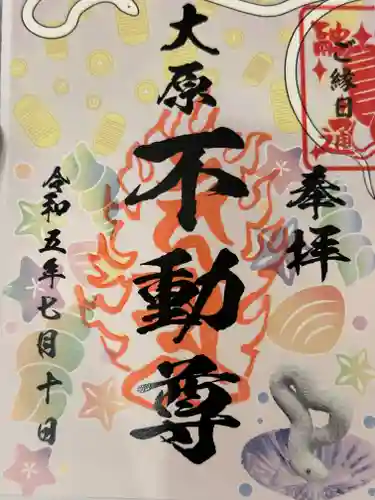 ご縁日
融通
奉拝
大原
不動尊
令和五年七月十日